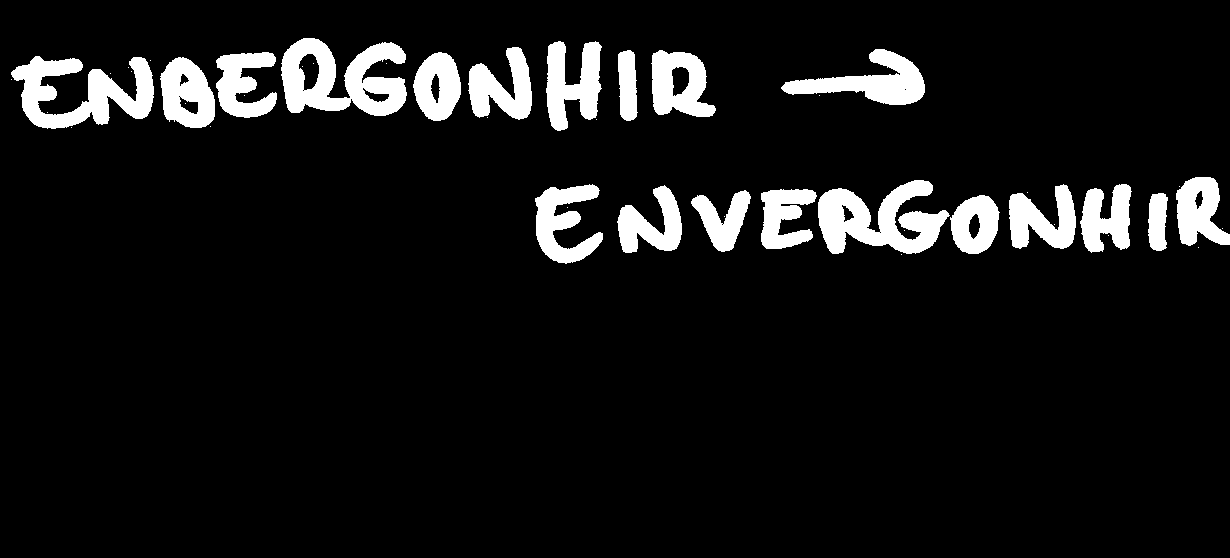 ENBERGONHIR →
ENVERGONHIR